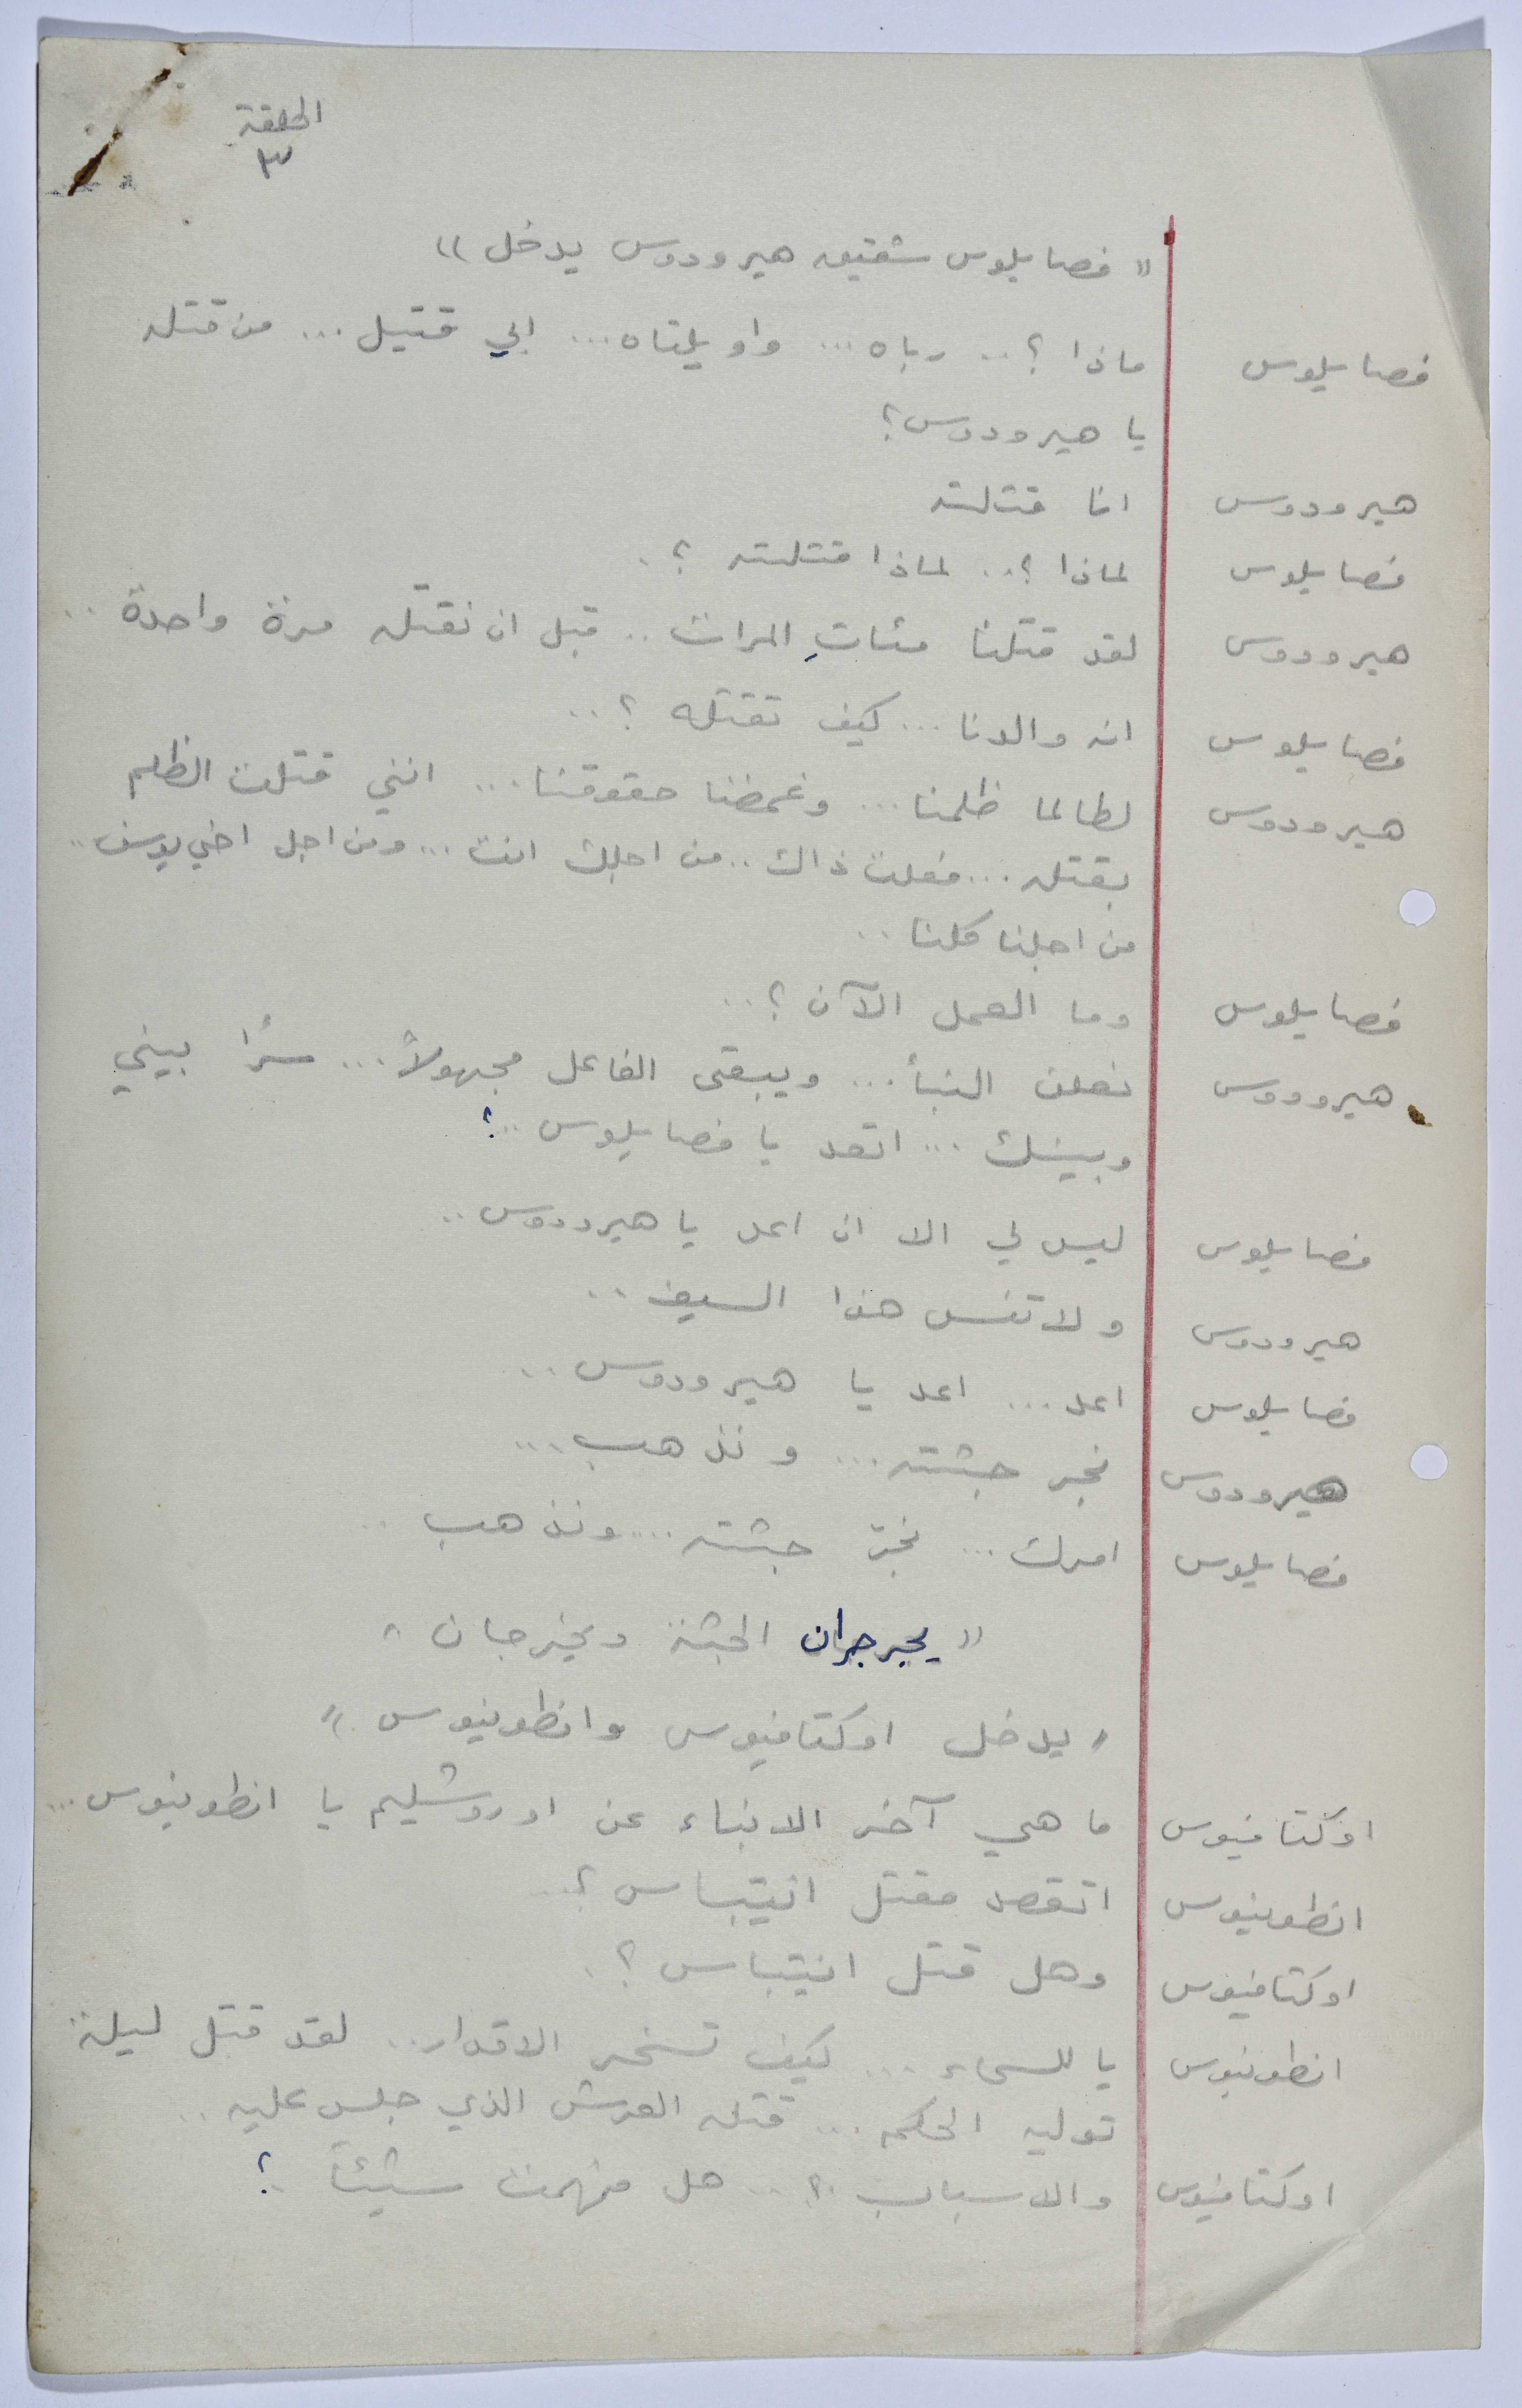 الحلقة
٣
" فصايلوس شقيق هيرودوس يدخل "
فصايلوس ماذا ؟ .. رباه ... واويلتاه ... ابي قتيل ... من قتله
يا هيرودوس ؟
هيرودوس انا قتلته
فصايلوس لماذا ؟ .. لماذا قتلته ؟ .
هيرودوس لقد قتلنا مئاتِ المرات .. قبل ان نقتله مرة واحدة ..
فصايلوس انه والدنا ... كيف تقتله ؟ ..
هيرودوس لطالما ظلمنا ... وغمضنا حقوقنا ... انني قتلت الظلم
بقتله ... فعلت ذاك .. من اجلك انت ... ومن اجل اخي يوسف ..
من اجلنا كلنا ..
فصايلوس وما العمل الآن ؟ ..
هيرودوس نعلن النبأ ... ويبقى الفاعل مجهولاً ... سرًا بيني
وبينك ... اتعد يا فصايلوس .. ؟
فصايلوس ليس لي الا ان اعد يا هيرودوس ..
هيرودوس ولا تنس هذا السيف ..
فصايلوس اعد ... اعد يا هيرودوس ..
هيرودوس نجر جثته ... ونذهب ...
فصايلوس امرك ... نجرّ جثته ... ونذهب ..
" يجرجران الجثة ويخرجان "
" يدخل اوكتافيوس وانطونيوس "
اوكتافيوس ما هي آخر الانباء عن اوروشليم يا انطونيوس ...
انطونيوس اتقصد مقتل انتيباس ؟ ..
اوكتافيوس وهل قتل انتيباس ؟ .
انطونيوس يا للسماء ... كيف تسخر الاقدار .. لقد قتل ليلة
توليه الحكم ... قتله العرش الذي جلس عليه ..
اوكتافيوس والاسباب ؟ .. هل فهمت شيئاً .. ؟